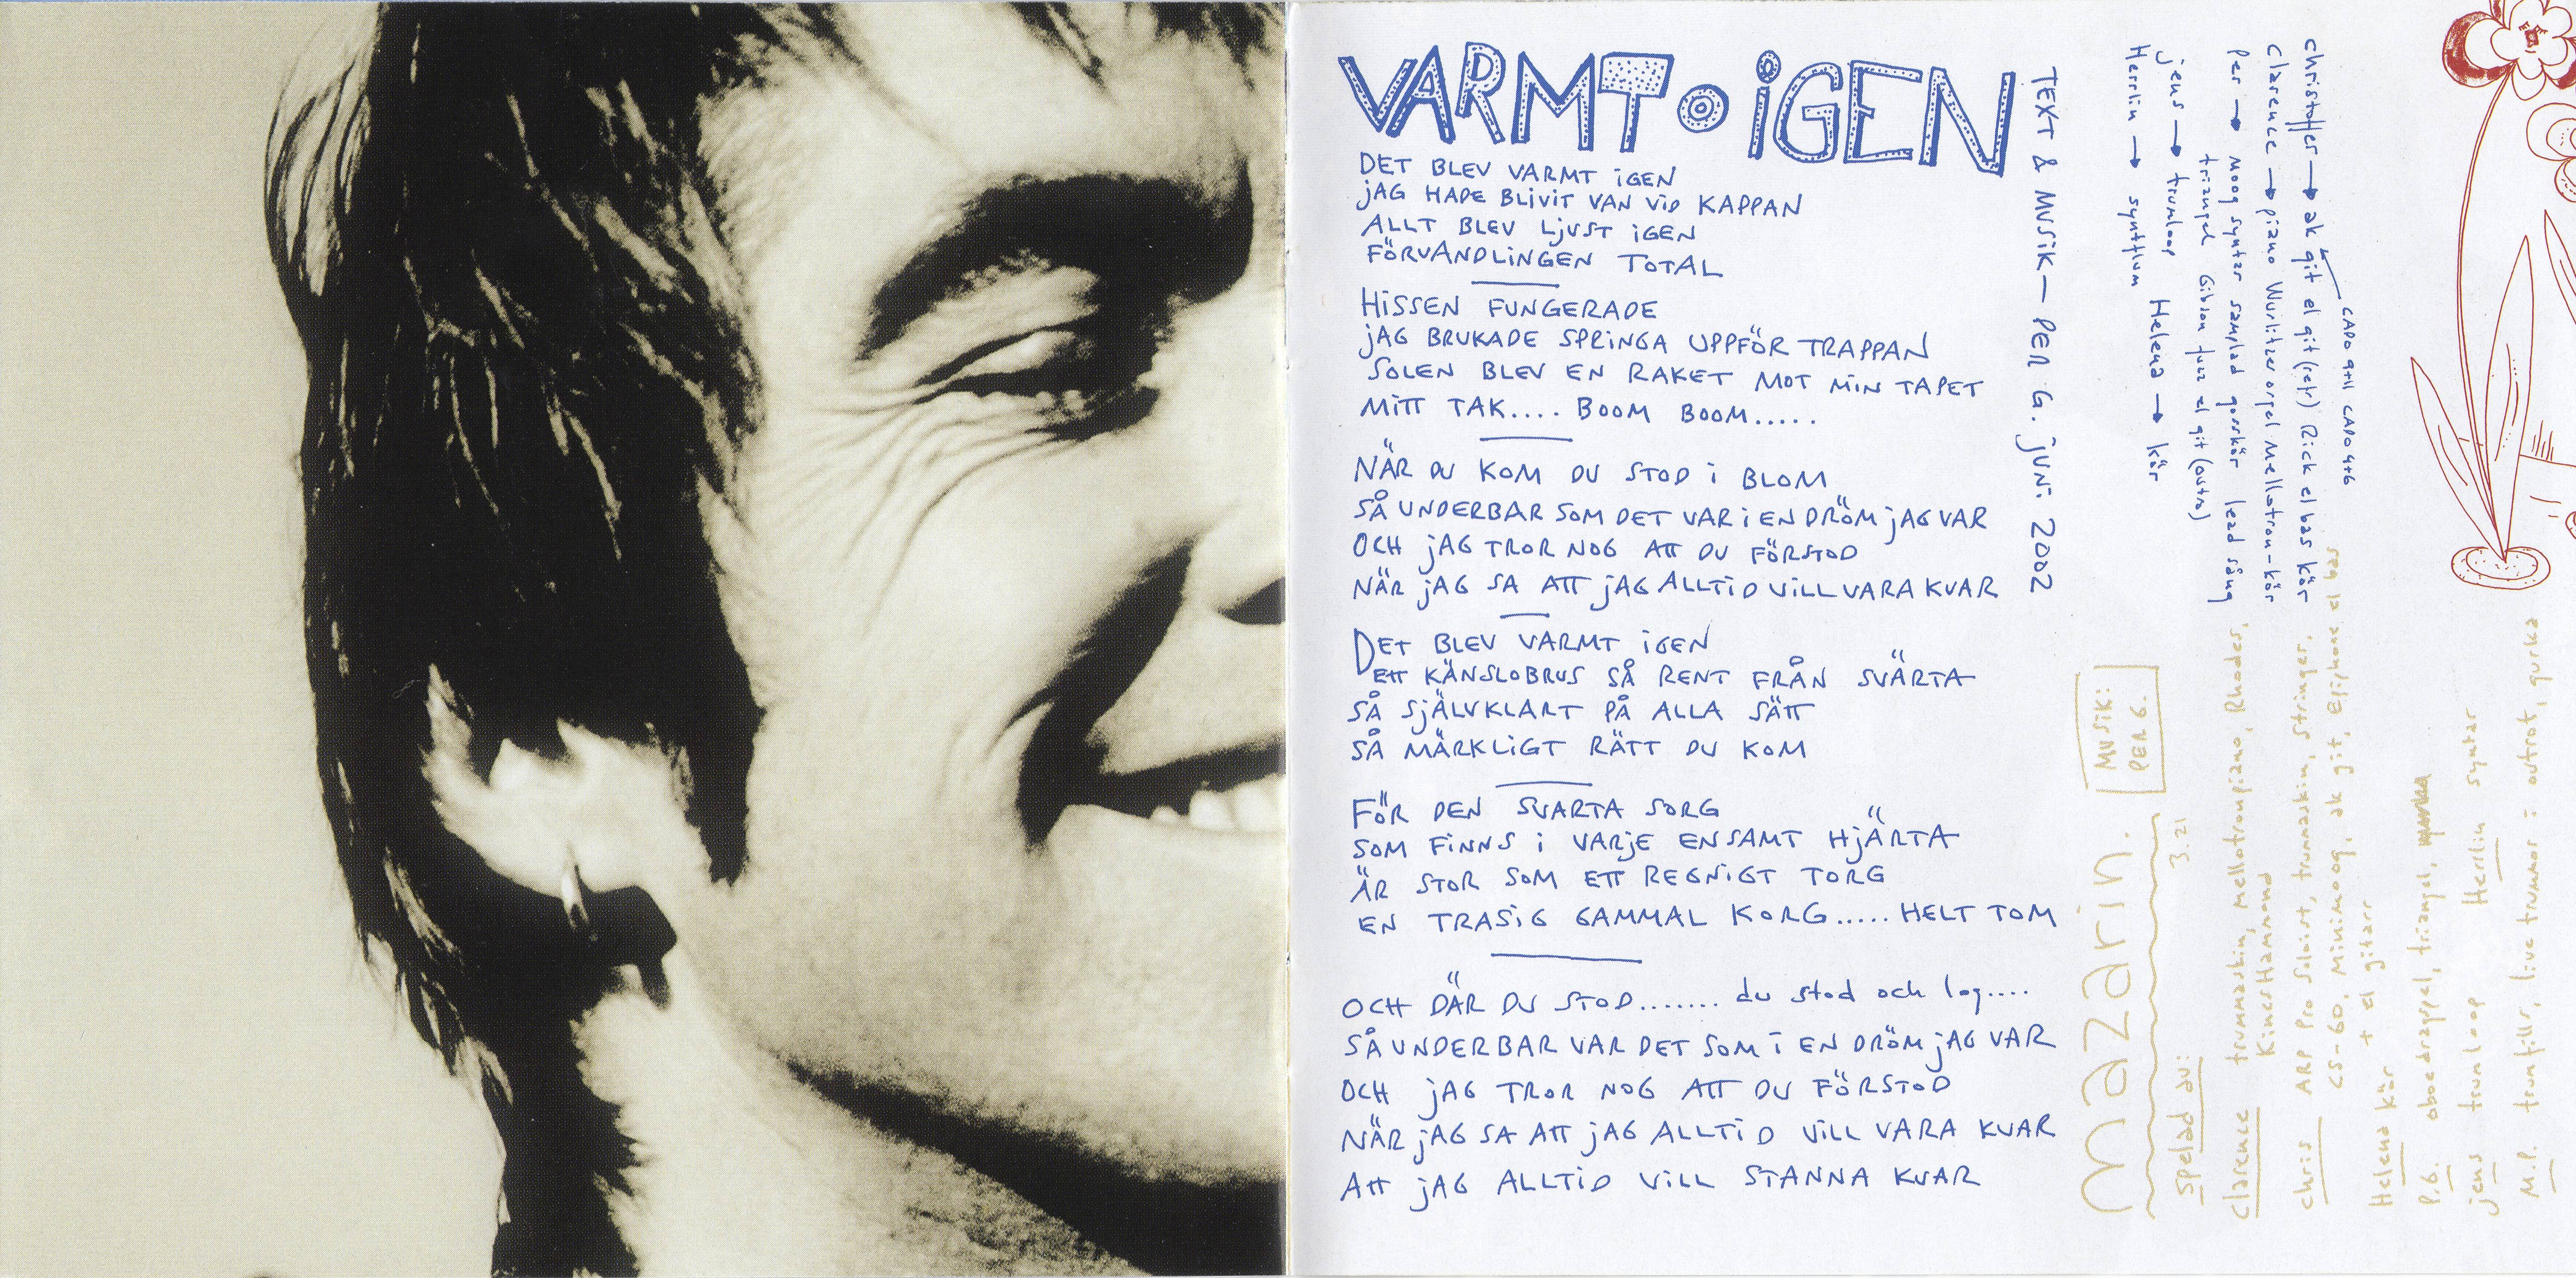 VARMT • iGEN
DET BLEV VARMT iGEN
jAG HADE BLiViT VAN ViD KAPPAN
ALLT BLEV LjUST iGEN
FÖRVANDLiNGEN TOTAL
HiSSEN FUNGERADE
jAG BRUKADE SPRiNGA UPPFÖR TRAPPAN
SOLEN BLEV EN RAKET MOT MiN TAPET
MiTT TAK.... BOOM BOOM.....
NÄR DU KOM DU STOD i BLOM
SÅ UNDERBAR SOM DET VAR i EN DRÖM jAG VAR
OCH jAG TROR NOG ATT DU FÖRSTOD
NÄR jAG SA ATT jAG ALLTiD ViLL VARA KVAR
DET BLEV VARMT iGEN
ETT KÄNSLOBRUS SÅ RENT FRÅN SVÄRTA
SÅ SjÄLVKLART PÅ ALLA SÄTT
SÅ MÄRKLiGT RÄTT DU KOM
FÖR DEN SVARTA SORG
SOM FiNNS i VARjE ENSAMT HjÄRTA
ÄR STOR SOM ETT REGNiGT TORG
EN TRASiG GAMMAL KORG..... HELT TOM
OCH DÄR DU STOD....... du stod och log....
SÅ UNDERBAR VAR DET SOM i EN DRÖM jAG VAR
OCH jAG TROR NOG ATT DU FÖRSTOD
NÄR jAG SA ATT jAG ALLTiD ViLL VARA KVAR
ATT jAG ALLTiD ViLL STANNA KVAR
TEXT & MUSiK — PER G. jUNi 2002
christoffer → ak git el git (refr) Rick el bas kör
CAPO 9+11 CAPO 4+6
clarence → piano Wurlitzer orgel mellotron-kör
Per → moog syntar samplad gosskör lead sång
triangel Gibson fuzz el git (outro)
jens → trumloop Helena → kör
Herrlin → syntflum
mazarin.
MUSiK:
PER G.
3.21
spelad av:
clarence trummaskin, mellotronpiano, Rhodes,
KinestHammond
chris ARP Pro Soloist, trummaskin, stringer,
CS-60, Minimoog, ak git, Epiphone el bas
+ el gitarr
Helena kör
P.G. oboedrappel, triangel,
jens trumloop Herrlin syntar
M.P. trumfills, live trummor i outrot, gurka